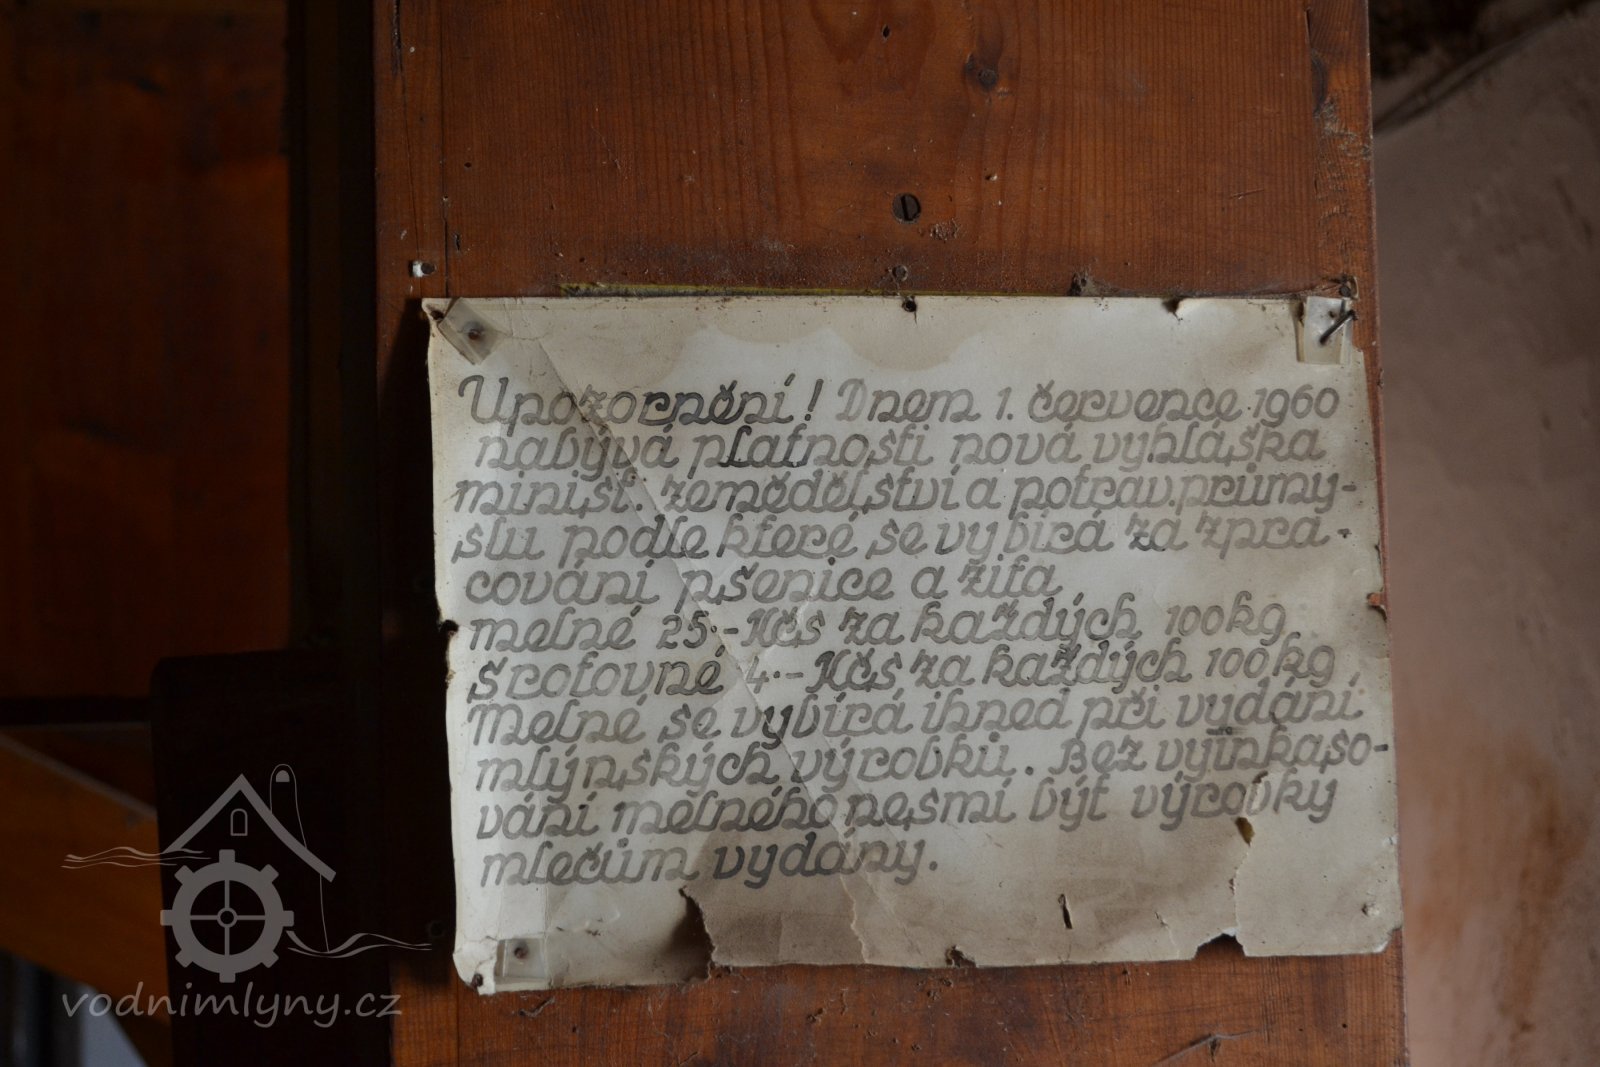 Upozornění! Dnem 1. července 1960
nabývá platnosti nová vyhláška
minist. zemědělství a potrav. průmy-
slu podle které se vybírá za zpra-
cování pšenice a žita
melné 25.- Kčs za každých 100 kg
šrotovné 4.- Kčs za každých 100 kg
Melné se vybírá ihned při vydání
mlýnských výrobků. Bez vyinkaso-
vání melného nesmí být výrobky
mlečům vydány.
vodnimlyny.cz